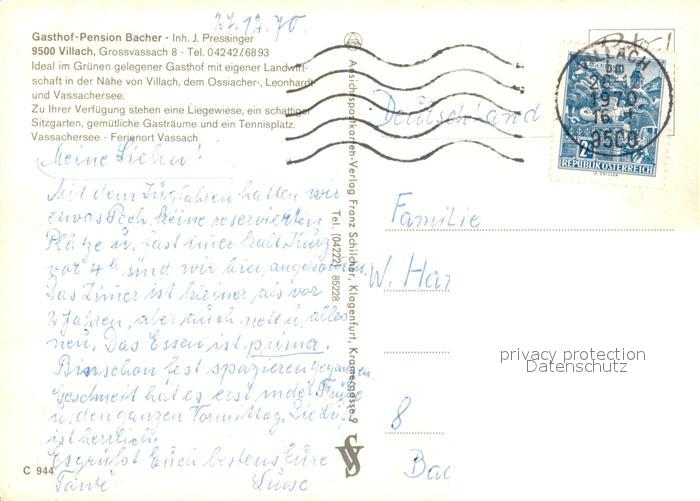 27.12.70.
Gasthof-Pension Bacher - Inh. J. Pressinger
9500 Villach, Grossvassach 8 - Tel. 04242/6893
Ideal im Grünen gelegener Gasthof mit eigener Landwirt-
schaft in der Nähe von Villach, dem Ossiacher-, Leonhard-
und Vassachersee.
Zu Ihrer Verfügung stehen eine Liegewiese, ein schattiger
Sitzgarten, gemütliche Gasträume und ein Tennisplatz.
Vassachersee - Ferienort Vassach
Meine Lieben!
Mit dem Zugfahren hatten wir
etwas Pech keine reservierten
Plätze u. fast immer kalt. Kurz
vor 4h sind wir hier angekommen.
Das Zimer ist kleiner, als vor
2 Jahren, aber auch nett u. alles
neu. Das Essen ist prima.
Bin schon fest spazieren gegangen.
Geschneit hat es erst in der Frühe
u. den ganzen Vormittag. Die Luft
ist herrlich.
Es grüßt Euch bestens Eure
Tante Luise
C 944
Ansichtspostkarten-Verlag Franz Schilcher, Klagenfurt, Kramergasse 9
Tel. (04222) 85228
VS
VILLACH
1970
9500
2S
REPUBLIK ÖSTERREICH
Deutschland
Familie
W. Har
8
Bac
privacy protection
Datenschutz